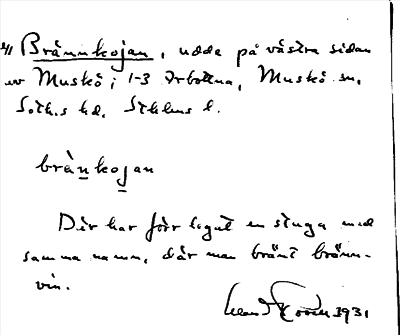 Brännkojan, udde på västra sidan
av Muskö i 1-3 Arbottna, Muskö sn,
Soth.s hd, Sthlms l.
bränkojan
Där har förr legat en stuga med
samma namn, där man bränt bränn-
vin.
1931